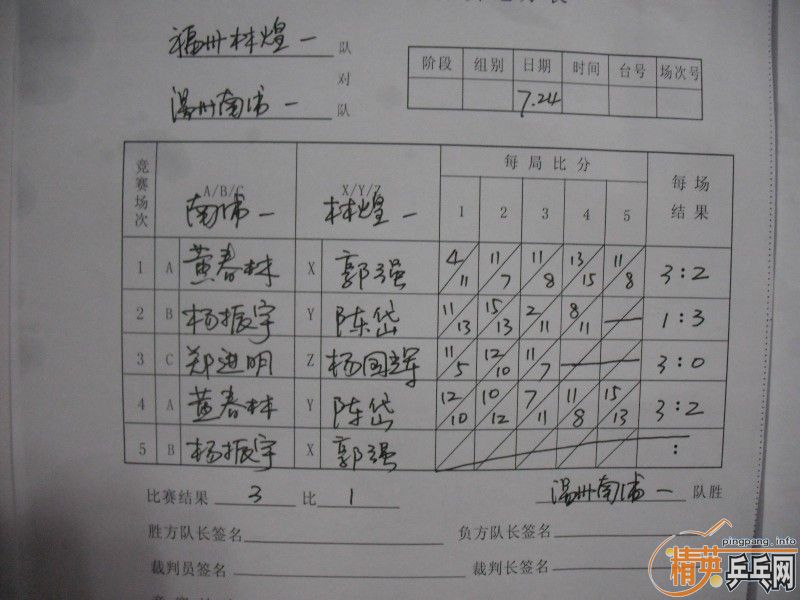 福州林煌一 队
对
温州南浦一 队
阶段 组别 日期 时间 台号 场次号
7.24
竞赛场次 A/B/C 南浦一 X/Y/Z 林煌一 每局比分 每场结果
1 2 3 4 5
1 A 黄春林 X 郭强 4/11 11/7 11/8 13/15 11/8 3:2
2 B 杨振宇 Y 陈岱 11/13 15/13 2/11 8/11 — 1:3
3 C 郑进明 Z 杨国辉 11/5 12/10 11/7 — — 3:0
4 A 黄春林 Y 陈岱 12/10 10/12 7/11 11/8 15/13 3:2
5 B 杨振宇 X 郭强 :
比赛结果 3 比 1 温州南浦一 队胜
胜方队长签名 负方队长签名
裁判员签名 裁判长签名
pingpang.info
精英乒乓网